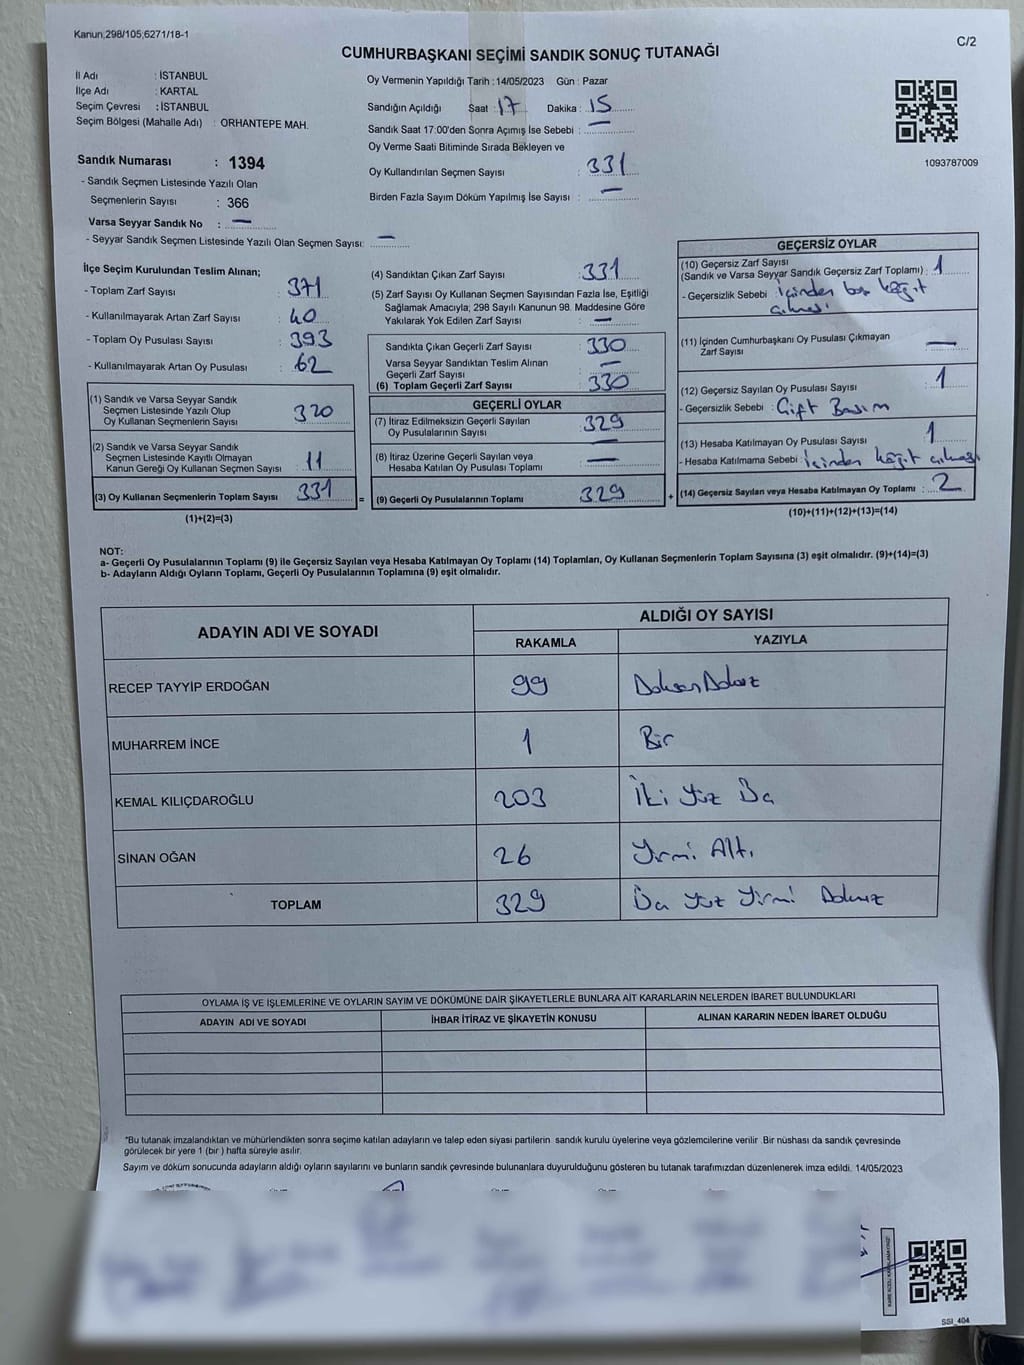 Kanun;298/105;6271/18-1
C/2
CUMHURBAŞKANI SEÇİMİ SANDIK SONUÇ TUTANAĞI
İl Adı : İSTANBUL
İlçe Adı : KARTAL
Seçim Çevresi : İSTANBUL
Seçim Bölgesi (Mahalle Adı) : ORHANTEPE MAH.
Sandık Numarası : 1394
- Sandık Seçmen Listesinde Yazılı Olan
Seçmenlerin Sayısı : 366
Varsa Seyyar Sandık No : —
- Seyyar Sandık Seçmen Listesinde Yazılı Olan Seçmen Sayısı: —
Oy Vermenin Yapıldığı Tarih : 14/05/2023 Gün : Pazar
Sandığın Açıldığı Saat : 17 Dakika : 15
Sandık Saat 17:00'den Sonra Açımış İse Sebebi : —
Oy Verme Saati Bitiminde Sırada Bekleyen ve
Oy Kullandırılan Seçmen Sayısı : 331
Birden Fazla Sayım Döküm Yapılmış İse Sayısı : —
1093787009
İlçe Seçim Kurulundan Teslim Alınan;
- Toplam Zarf Sayısı : 371
- Kullanılmayarak Artan Zarf Sayısı : 40
- Toplam Oy Pusulası Sayısı : 393
- Kullanılmayarak Artan Oy Pusulası : 62
(1) Sandık ve Varsa Seyyar Sandık
Seçmen Listesinde Yazılı Olup
Oy Kullanan Seçmenlerin Sayısı : 320
(2) Sandık ve Varsa Seyyar Sandık
Seçmen Listesinde Kayıtlı Olmayan
Kanun Gereği Oy Kullanan Seçmen Sayısı : 11
(3) Oy Kullanan Seçmenlerin Toplam Sayısı : 331
(1)+(2)=(3)
(4) Sandıktan Çıkan Zarf Sayısı : 331
(5) Zarf Sayısı Oy Kullanan Seçmen Sayısından Fazla İse, Eşitliği
Sağlamak Amacıyla; 298 Sayılı Kanunun 98. Maddesine Göre
Yakılarak Yok Edilen Zarf Sayısı : —
Sandıkta Çıkan Geçerli Zarf Sayısı : 330
Varsa Seyyar Sandıktan Teslim Alınan
Geçerli Zarf Sayısı : —
(6) Toplam Geçerli Zarf Sayısı : 330
GEÇERLİ OYLAR
(7) İtiraz Edilmeksizin Geçerli Sayılan
Oy Pusulalarının Sayısı : 329
(8) İtiraz Üzerine Geçerli Sayılan veya
Hesaba Katılan Oy Pusulası Toplamı : —
= (9) Geçerli Oy Pusulalarının Toplamı : 329
GEÇERSİZ OYLAR
(10) Geçersiz Zarf Sayısı
(Sandık ve Varsa Seyyar Sandık Geçersiz Zarf Toplamı) : 1
- Geçersizlik Sebebi : İçinden boş kağıt
çıkması
(11) İçinden Cumhurbaşkanı Oy Pusulası Çıkmayan
Zarf Sayısı : —
(12) Geçersiz Sayılan Oy Pusulası Sayısı : 1
- Geçersizlik Sebebi : Çift Basım
(13) Hesaba Katılmayan Oy Pusulası Sayısı : 1
- Hesaba Katılmama Sebebi : İçinden kağıt çıkması
+ (14) Geçersiz Sayılan veya Hesaba Katılmayan Oy Toplamı : 2
(10)+(11)+(12)+(13)=(14)
NOT:
a- Geçerli Oy Pusulalarının Toplamı (9) ile Geçersiz Sayılan veya Hesaba Katılmayan Oy Toplamı (14) Toplamları, Oy Kullanan Seçmenlerin Toplam Sayısına (3) eşit olmalıdır. (9)+(14)=(3)
b- Adayların Aldığı Oyların Toplamı, Geçerli Oy Pusulalarının Toplamına (9) eşit olmalıdır.
ADAYIN ADI VE SOYADI
ALDIĞI OY SAYISI
RAKAMLA YAZIYLA
RECEP TAYYİP ERDOĞAN 99 Doksan Dokuz
MUHARREM İNCE 1 Bir
KEMAL KILIÇDAROĞLU 203 İki Yüz Üç
SİNAN OĞAN 26 Yirmi Altı
TOPLAM 329 Üç Yüz Yirmi Dokuz
OYLAMA İŞ VE İŞLEMLERİNE VE OYLARIN SAYIM VE DÖKÜMÜNE DAİR ŞİKAYETLERLE BUNLARA AİT KARARLARIN NELERDEN İBARET BULUNDUKLARI
ADAYIN ADI VE SOYADI İHBAR İTİRAZ VE ŞİKAYETİN KONUSU ALINAN KARARIN NEDEN İBARET OLDUĞU
*Bu tutanak imzalandıktan ve mühürlendikten sonra seçime katılan adayların ve talep eden siyasi partilerin sandık kurulu üyelerine veya gözlemcilerine verilir .Bir nüshası da sandık çevresinde
görülecek bir yere 1 (bir ) hafta süreyle asılır.
Sayım ve döküm sonucunda adayların aldığı oyların sayılarını ve bunların sandık çevresinde bulunanlara duyurulduğunu gösteren bu tutanak tarafımızdan düzenlenerek imza edildi. 14/05/2023
SSI_404